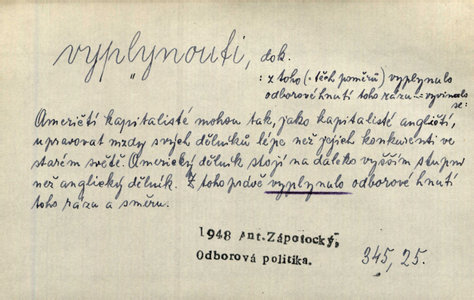 vyplynouti, dok.
: z toho (= těch poměrů) vyplynulo
odborové hnutí toho rázu = vyvinulo
se:
Američtí kapitalisté mohou tak, jako kapitalisté angličtí,
upravovat mzdy svých dělníků lépe než jejich konkurenti ve
starém světě. Americký dělník stojí na daleko vyšším stupni
než anglický dělník. Z toho právě vyplynulo odborové hnutí
toho rázu a směru.
1948 Ant. Zápotocký,
Odborová politika.
345, 25.